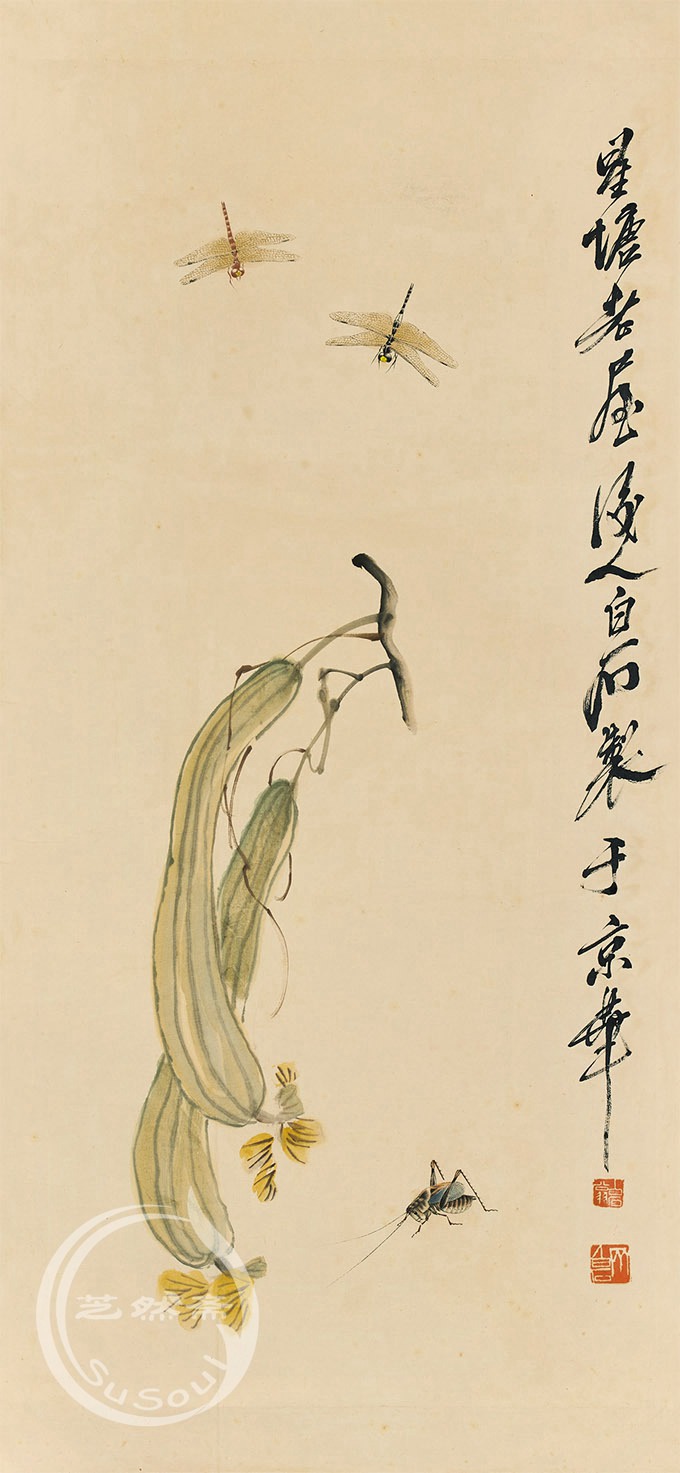 星塘老屋後人白石製于京華
芝然斋
SuSoul